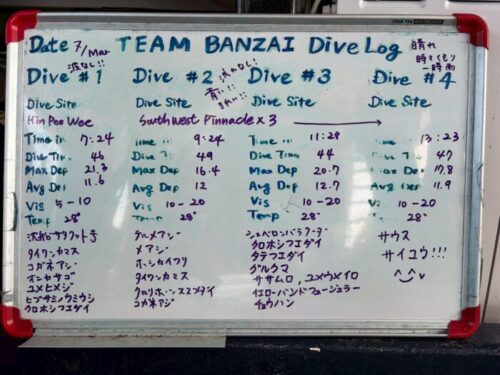 Date 7/Mar TEAM BANZAI Dive Log 晴れ
時々くもり
一時雨
波なし!!
Dive #1
Dive Site
Hin Pee Wee
Time in 7:24
Dive Time 46
Max Dep 21.3
Avg Dep 11.6
Vis 5-10
Temp 28°
タイワンカマス
コガネアジ
オニカサゴ
ユメヒメジ
ヒブサミノウミウシ
クロホシフエダイ
Dive #2 流れなし!
青い!!
きれい!!
Dive Site
Southwest Pinnacle x 3
Time in 9:24
Dive Ti 49
Max Dep 16.4
Avg Dep 12
Vis 10-20
Temp 28°
グルメアジ
イアジ
ホシカイワリ
タイワンカマス
コガネアジ
Dive #3
Dive Site
Time in 11:28
Dive Time 44
Max Dep 20.7
Avg Dep 12.7
Vis 10-20
Temp 28°
シェベロンバラクーダ
クロホシフエダイ
タテフエダイ
グルクマ
ササムロ、ユメウメイロ
イエローバンドフュージュラー
チョウハン
Dive #4
Dive Site
Time in 13:23
Dive Ti 47
Max Dep 17.8
Avg Dep 11.9
Vis 10-20
Temp 28°
サウス
サイコウ!!!